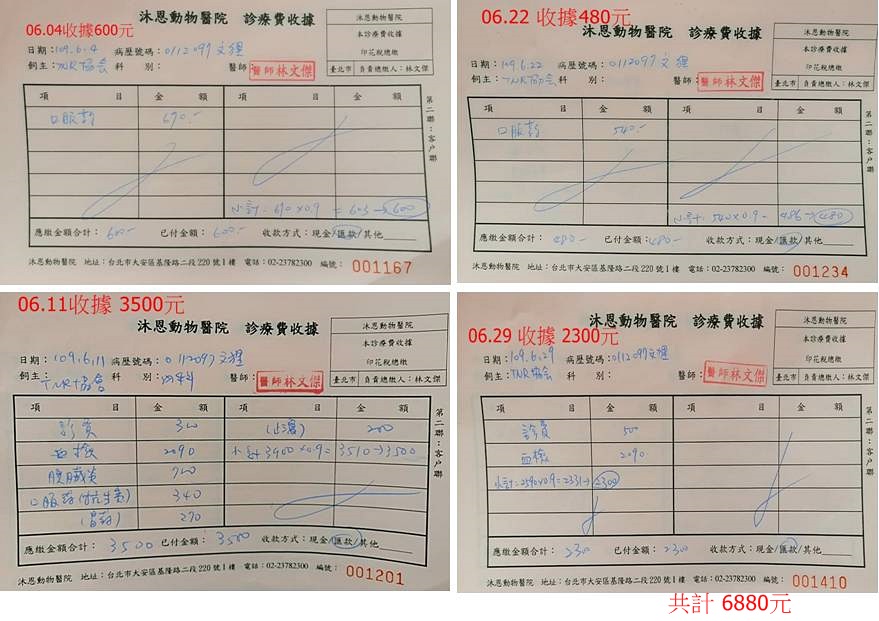 06.04收據600元
沐恩動物醫院 診療費收據
沐恩動物醫院
本診療費收據
印花稅總繳
臺北市 負責總繳人：林文傑
日期：109.6.4 病歷號碼：0112097 文狸
飼主：TNR協會 科 別： 醫師 醫師林文傑
項 目 金 額 項 目 金 額
口服葯 670.-
小計：670×0.9 = 603→600
第二聯：訴戶聯
應繳金額合計：600- 已付金額：600- 收款方式：現金/匯款/其他
沐恩動物醫院 地址：台北市大安區基隆路二段220號1樓 電話：02-23782300 編號： 001167
06.22 收據480元
沐恩動物醫院 診療費收據
沐恩動物醫院
本診療費收據
印花稅總繳
臺北市 負責總繳人：林文傑
日期：109.6.22 病歷號碼：0112097 文狸
飼主：TNR協會 科 別： 醫師： 醫師林文傑
項 目 金 額 項 目 金 額
口服葯 540.-
小計：540×0.9- 486→480
應繳金額合計：480- 已付金額：480- 收款方式：現金/匯款/其他
沐恩動物醫院 地址：台北市大安區基隆路二段220號1樓 電話：02-23782300 編號： 001234
06.11收據 3500元
沐恩動物醫院 診療費收據
沐恩動物醫院
本診療費收據
印花稅總繳
臺北市 負責總繳人：林文傑
日期：109.6.11 病歷號碼：0112097文狸
飼主：TNR協會 科 別：內科 醫師： 醫師林文傑
項 目 金 額 項 目 金 額
診費 300 (止瀉) 200
血檢 2090 小計3900×0.9= 3510→3500
胰臟炎 700
口服葯(抗生素) 340
(胃葯) 270
應繳金額合計：3500 已付金額：3500 收款方式：現金/匯款/其他
沐恩動物醫院 地址：台北市大安區基隆路二段220號1樓 電話：02-23782300 編號： 001201
06.29 收據 2300元
沐恩動物醫院 診療費收據
沐恩動物醫院
本診療費收據
印花稅總繳
臺北市 負責總繳人：林文傑
日期：109.6.29 病歷號碼：0112097文狸
飼主：TNR協會 科 別： 醫師： 醫師林文傑
項 目 金 額 項 目 金 額
診費 500
血檢 2090
小計：2590×0.9=2331→2300
應繳金額合計：2300 已付金額：2300 收款方式：現金/匯款/其他
沐恩動物醫院 地址：台北市大安區基隆路二段220號1樓 電話：02-23782300 編號： 001410
共計 6880元